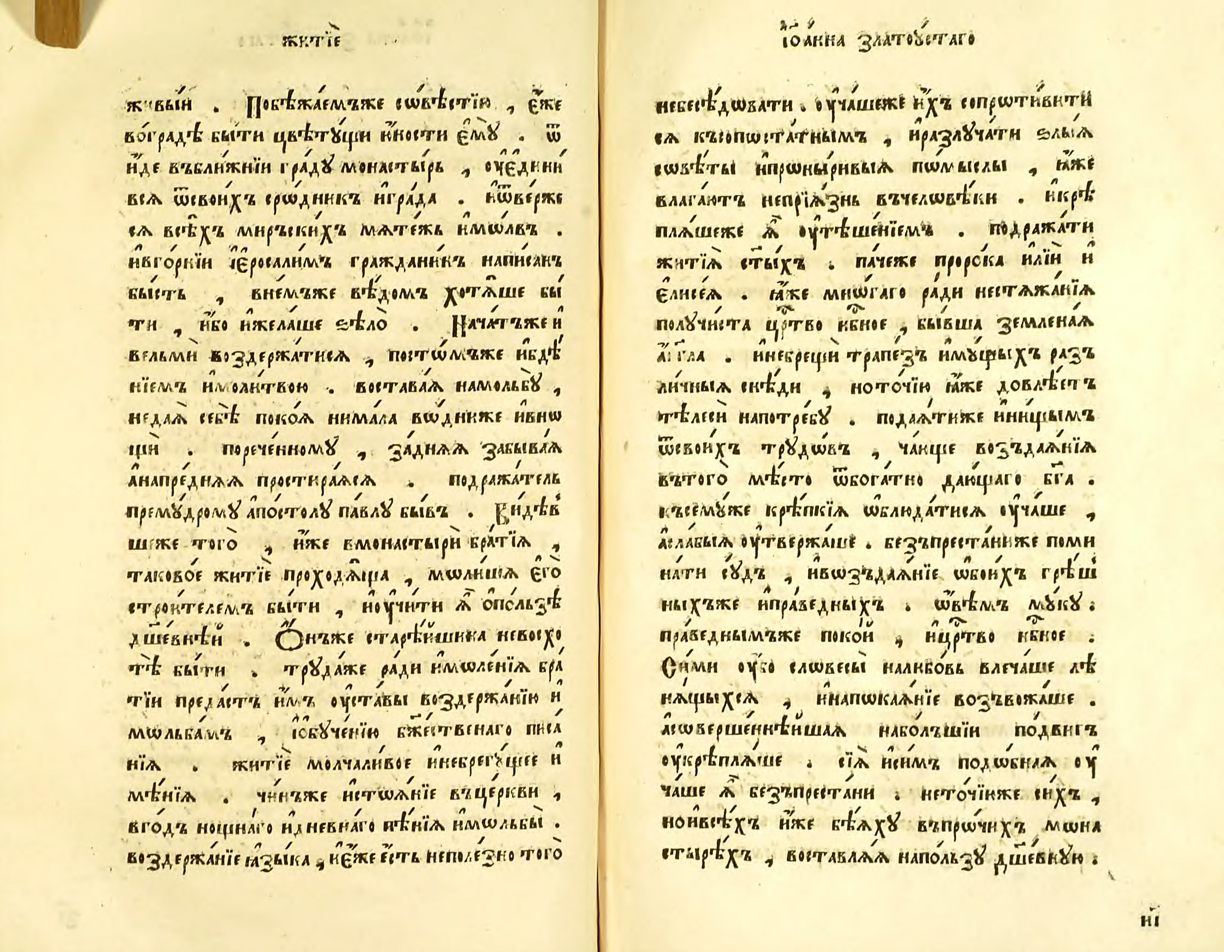 житїѐ
живы́й . Побѣжаемъже сѡвѣстїю , є҆́же
воградѣ бы́ти цвѣтꙋ́щи ю҆́ности є҆мꙋ̀ . ѿ
и҆́де въближнїи гра́дꙋ монасты́рь , ᲂу҆є҆дини
всѧ ѿсвои́хъ срѡ́дникъ игра́да . иѿве́рже
сѧ всѣ́хъ ми́рьскихъ мѧте́жь имѡ́лвъ .
ивго́рнїи і҆єросали́мъ гра́жданинъ напи́санъ
бы́сть , внемъже вѣ́домъ хотѧ́ше бы
ти , и҆́бо ижела́ше ѕѣлѡ̀ . Нача́тъже и
вельмѝ воздержа́тисѧ , посто́мъже ибдѣ́
нїемъ имоли́твою . востава́ѧ намольбꙋ̀ ,
неда́ѧ себѣ̀ поко́ѧ нима́ла вѡ́дниже ивнѡ
щи . порече́нномꙋ , за́днѧѧ забыва́ѧ
а҆напре́днѧѧ простира́ѧсѧ . подража́тель
премꙋ́дромꙋ а҆по́столꙋ па́влꙋ бы́въ . Ви́дѣв
шеже того̀ , и҆́же вмонастырѝ бра́тїѧ ,
таково́е житїѐ проходѧ́ща , мѡли́ша є҆го̀
строи́телемъ бы́ти , ноᲂу҆чи́ти ѧ҆̀ ѡ҆по́льзѣ
дш҃е́внѣй . Ѻ҆́нъже старѣ́йшина невосхо
тѣ̀ бы́ти . трꙋда́же ра́ди имѡле́нїѧ бра́
тїи преда́стъ и҆̀мъ ᲂу҆ста́вы воздержа́нїю и
мѡльба́мъ , і҆ѡ҆бꙋче́нїю бж҃е́ственаго писа́
нїѧ . житїѐ молчали́вое инебрегꙋ́щее и
мѣ́нїѧ . чи́нъже истоѧ́нїе въце́ркви ,
вго́дъ нощна́го идневна́го пѣ́нїѧ имѡльбы̀ .
воздержа́нїе ꙗ҆зы́ка , не́же є҆́сть неполе́зно того̀
і҆ѡа́нна златоꙋ́стаго
небесѣ́дѡвати . ᲂу҆ча́шеже и҆́хъ сопрѡти́вити
сѧ късопѡста́тнымъ , иразлꙋча́ти ѕлы́ѧ
сѡвѣ́ты ипрѡны́ривыѧ по́мыслы , ꙗ҆́же
влага́ютъ непрїѧ́знь въчелѡвѣ́ки . икрѣ
плѧ́шеже ѧ҆̀ ᲂу҆тѣше́нїемъ . подража́ти
житїѧ̀ ст҃ы́хъ . па́чеже прⷪ҇ро́ка илїѝ и
є҆лисе́ѧ . ꙗ҆́же мнѡ́гаго ра́ди нестѧжа́нїѧ
полꙋчи́ста црⷭ҇тво нбⷭ҇ное , бы́вша земле́наѧ
а҆́гг҃ла . инебрещѝ трапе́зъ имꙋ́щыхъ раз
ли́чныѧ снѣ́ди , ното́чїю ꙗ҆́же довлѣ́етъ
тѣлесѝ напотре́бꙋ . подаѧ́тиже ини́щымъ
ѿсвои́хъ трꙋдѡ́въ , ча́юще возъдаѧ́нїѧ
втого̀ мѣ́сто ѿбога́тно даю́щаго бг҃а .
късемꙋ́же крѣ́пкїѧ ѡ҆блюда́тисѧ ᲂу҆ча́ше ,
а҆сла́быѧ ᲂу҆твержа́ше . безъпреста́ниже поми
на́ти сꙋ́дъ , ивѡзъдаѧ́нїе ѡ҆бои́хъ грѣ́ш
ныхъже ипра́ведныхъ . ѡ҆́вѣмъ мꙋ́кꙋ .
пра́веднымъже поко́й , ицрⷭ҇тво нбⷭ҇ное .
Си́ми ᲂу҆́бо слѡвесы̀ налюбо́вь влеча́ше лѣ
нѧ́щыхсѧ , инапѡкаѧ́нїе возъвожа́ше .
а҆сѡверше́ннѣйшаѧ набо́лъшїи по́двигъ
ᲂу҆крѣплѧ́ше . сїѧ̀ иси́мъ подѡ́бнаѧ ᲂу҆
ча́ше ѧ҆̀ безъпреста́ни . нето́чїюже си́хъ ,
ноивсѣ́хъ и҆́же бѣ́ѧхꙋ въпрѡ́чихъ мѡна
стырѣ́хъ , воставлѧ́ѧ напо́льзꙋ дш҃е́внꙋю .
н҃і